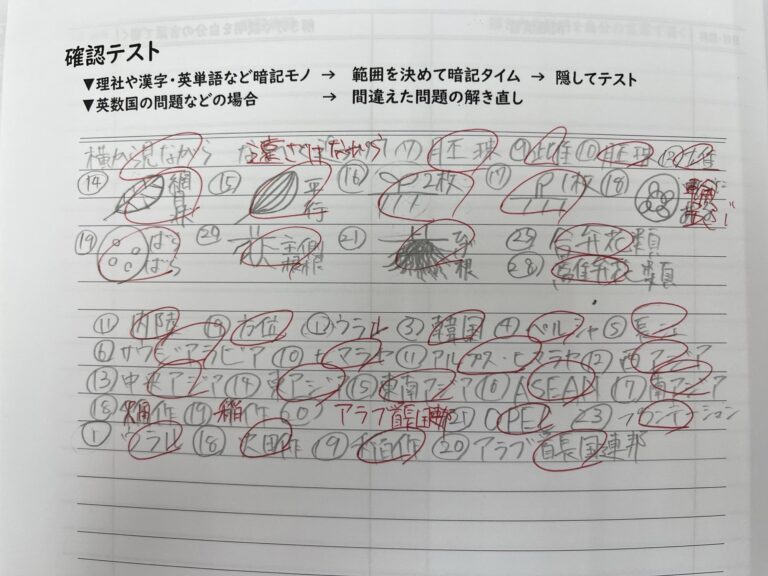 確認テスト
▼理社や漢字・英単語など暗記モノ → 範囲を決めて暗記タイム → 隠してテスト
▼英数国の問題などの場合 → 間違えた問題の解き直し
横から見ながら ⑦ 胚珠 ⑨ ⑩ 胚珠
⑭ 網目状 ⑮ 平行 ⑯ 2枚 ⑰ 1枚 ⑱
⑲ ばらばら ⑳ 主根 側根 ㉑ ひげ根 ㉕ 合弁花類
㉘ 離弁花類
⑪ 内陸 方位 ウラル ③ 韓国 ④ ペルシャ ⑤ 長江
⑥ サウジアラビア ⑩ ヒマラヤ ⑪ アルプス・ヒマラヤ ⑫ 西アジア
⑬ 中央アジア ⑭ 東アジア ⑮ 東南アジア ⑯ ASEAN ⑰ 南アジア
⑱ 畑作 ⑲ 稲作 アラブ首長国連邦 OPEC ㉓ プランテーション
① ウラル ⑱ 畑作 ⑲ 稲作 ⑳ アラブ首長国連邦